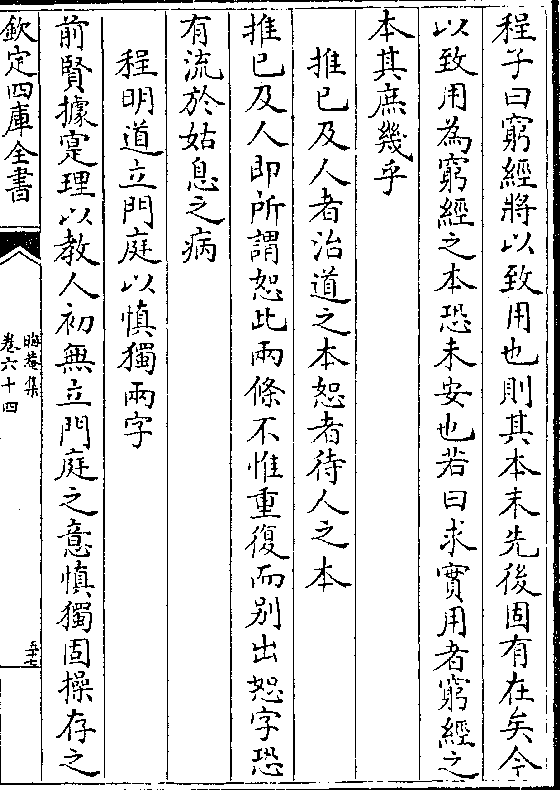 程子曰窮經將以致用也則其本末先後固有在矣今
以致用為窮經之本恐未安也若曰求實用者窮經之
本其庶幾乎
推已及人者治道之本恕者待人之本
推已及人即所謂恕此兩條不惟重復而别出恕字恐
有流於姑息之病
程明道立門庭以慎獨兩字
前賢據寔理以教人初無立門庭之意慎獨固操存之
欽定四庫全書
晦菴集
卷六十四